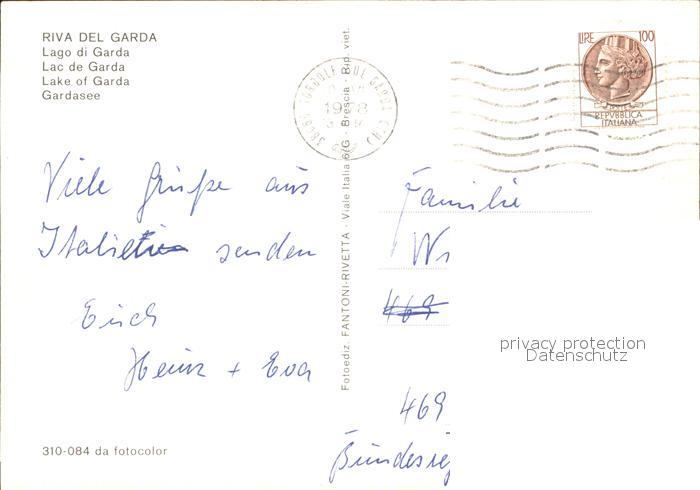 RIVA DEL GARDA
Lago di Garda
Lac de Garda
Lake of Garda
Gardasee
Viele Grüße aus
Italien senden
Euch
Heinz + Eva
310-084 da fotocolor
Fotoediz. FANTONI-RIVETTA - Viale Italia 6/G - Brescia - Rip. viet.
1978
LIRE 100
REPVBBLICA
ITALIANA
Familie
469
469
privacy protection
Datenschutz